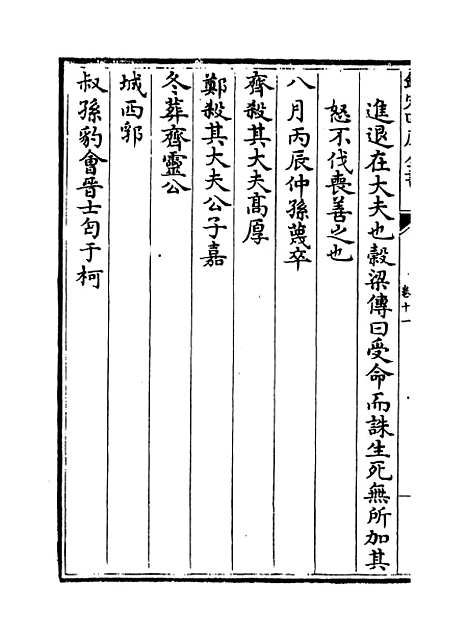 進退在大夫也穀梁傳曰受命而誅生死無所加其
怒不伐喪善之也
八月丙辰仲孫蔑卒
齊殺其大夫髙厚
鄭殺其大夫公子嘉
冬葬齊靈公
城西郛
叔孫豹會晉士匄于柯
卷十一